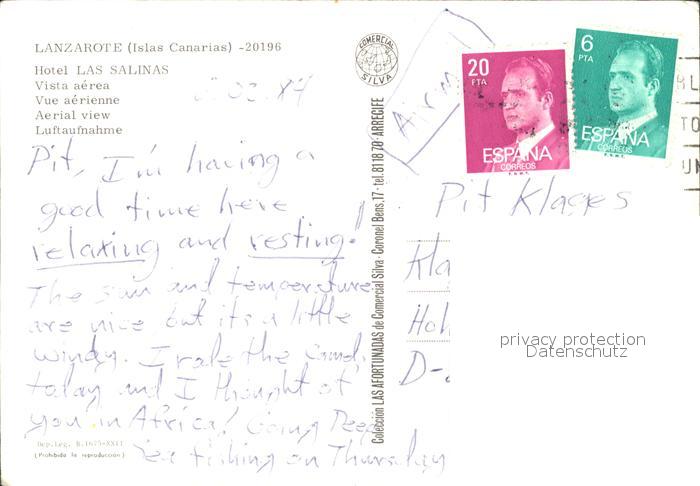 LANZAROTE (Islas Canarias) -20196
Hotel LAS SALINAS
Vista aérea
Vue aérienne
Aerial view
Luftaufnahme
Pit, I'm having a
good time here
relaxing and resting!
The sun and temperature
are nice but its a little
windy. I rode the camel
today and I thought of
you in Africa! Going Deep
Sea fishing on Thursday
Dep. Leg. B. 1675-XXII
(Prohibida la reproducción)
COMERCIAL SILVA
Colección LAS AFORTUNADAS de Comercial Silva - Coronel Bens, 17 - tel. 81 18 70 - ARRECIFE
Airmail
20 PTA
ESPAÑA
CORREOS
6 PTA
ESPAÑA
CORREOS
Pit Klages
Kla
Hol
D-
privacy protection
Datenschutz